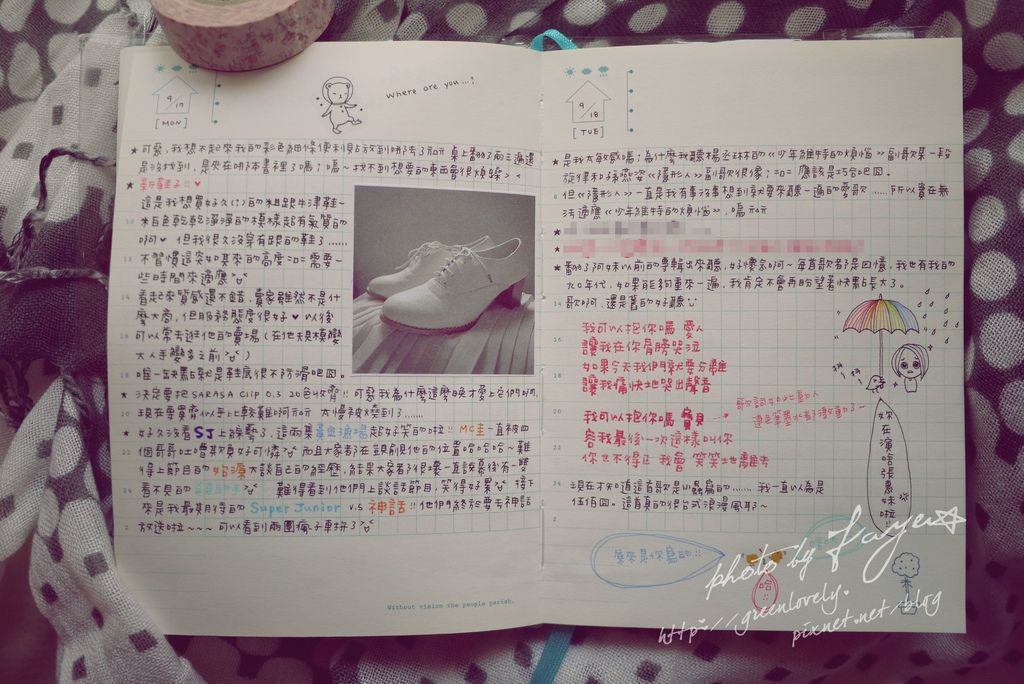 9/17
[MON]
where are you...?
★ 可惡,我想不起來我的彩色細條便利貼放到哪去了 桌上翻了兩三遍還
是沒找到,是夾在哪本書裡了嗎;嗚~找不到想要的東西會很煩躁> <
★ 新鞋子!! ♥
這是我想買好久(?)的粗跟牛津鞋~
米白色乾乾淨淨的模樣超有氣質的
啊♥ 但我很久沒穿有跟的鞋了......
不習慣這突如其來的高度=口= 需要一
些時間來適應
看起來質感還不錯,賣家雖然不是什
麼大商,但服務態度很好♥ 以後
可以常去逛他的賣場(在他夫規模變
大人手變多之前)
唯一缺點就是鞋底很不防滑吧囧。
★ 決定要把SARASA CLIP 0.3 20色收齊!! 可惡我為什麼這麼晚才愛上它們啊,
現在要買齊似乎比較難啊 大慢被燃到了......
★ 好久沒看SJ上綜藝了,這兩集黃金漁場超好笑的啦!! MC圭一直被四
個哥哥吐嘈欺負好可憐 而且大家都在覬覦他的位置哈哈哈~難
得上節目的 大談自己的經歷,結果大家都很壞一直說幕後有一雙
看不見的 難得看到他們上談話節目,笑得好累 接下
來是我最期待的 Super Junior v.s 神話!! 他們終於要去神話
放送啦~~~可以看到兩團瘋子車拚了
Without vision the people perish.
9/18
[TUE]
★ 是我太敏感嗎;為什麼我聽楊丞琳的《少年維特的煩惱》副歌某一段
旋律和孫燕姿《隱形人》副歌很像;=口= 應該是巧合吧囧。
但《隱形人》一直是我有事沒事想到就拿來聽一遍的愛歌......所以實在無
法適應《少年維特的煩惱》,嗚
★ 翻了阿妹以前的專輯出來聽,好懷念啊~每首歌都是回憶,我也有我的
九0年代,如果能夠重來一遍,我肯定不會再盼望著快點長大了。
歌啊,還是舊的好聽
我可以抱你嗎 愛人
讓我在你肩膀哭泣
如果今天我們就要分離
讓我痛快地哭出聲音
我可以抱你嗎 寶貝
容我最後一次這樣叫你
你也不得已 我會笑笑地離去
歌詞如此動人
連色筆墨水都
現在才知道這首歌是以為寫的......我一直以為是
伍佰囧。這首真的很台式浪漫風耶~
妳在演唱張惠妹啦!!
原來是你寫的!!
哈!!
photo by Faye☆
http://greenlovely.
pixnet.net/blog